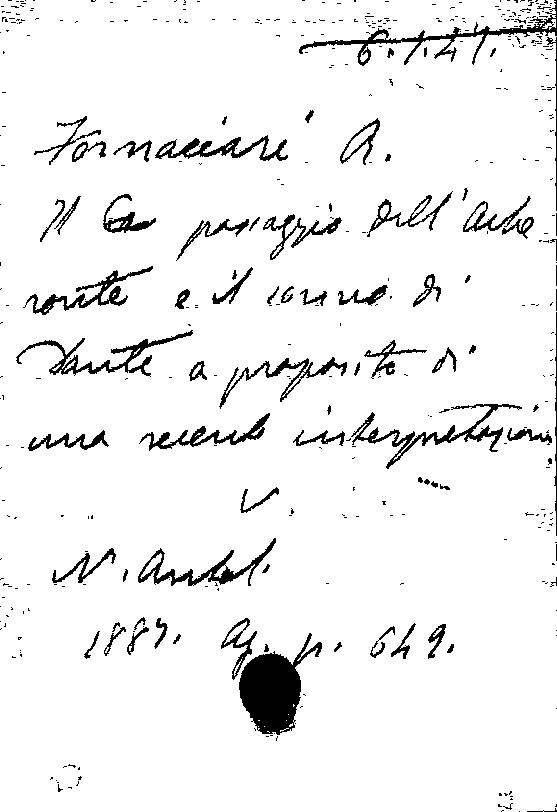 6.1.41.
Fornaciari R.
Il passaggio dell'Ache
ronte e il sonno di
Dante a proposito di
una recente interpretazione
V.
N. Antol.
1887. Ag. p. 649.